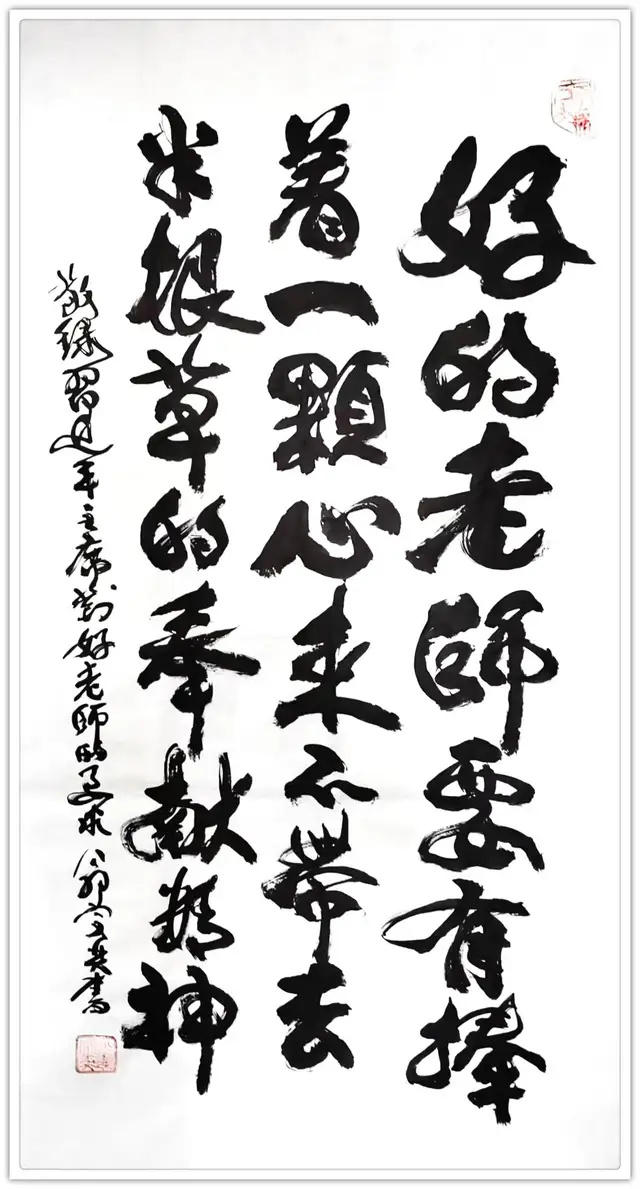 好的老師要有捧
着一顆心来不帶去
半根草的奉献精神
敬録習近平主席對好老師的要求 翁書